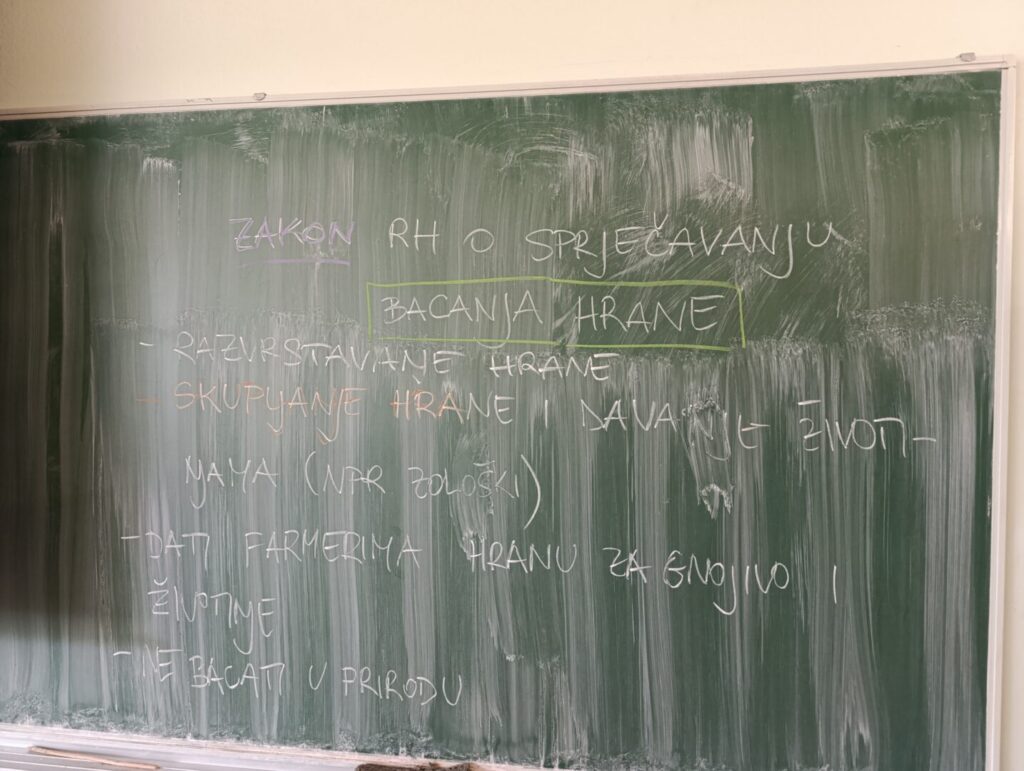 ZAKON RH O SPRJEČAVANJU
BACANJA HRANE
- RAZVRSTAVANJE HRANE
- SKUPLJANJE HRANE I DAVANJE ŽIVOTI-
NJAMA (NPR ZOLOŠKI)
- DATI FARMERIMA HRANU ZA GNOJIVO I
ŽIVOTINJE
- NE BACATI U PRIRODU